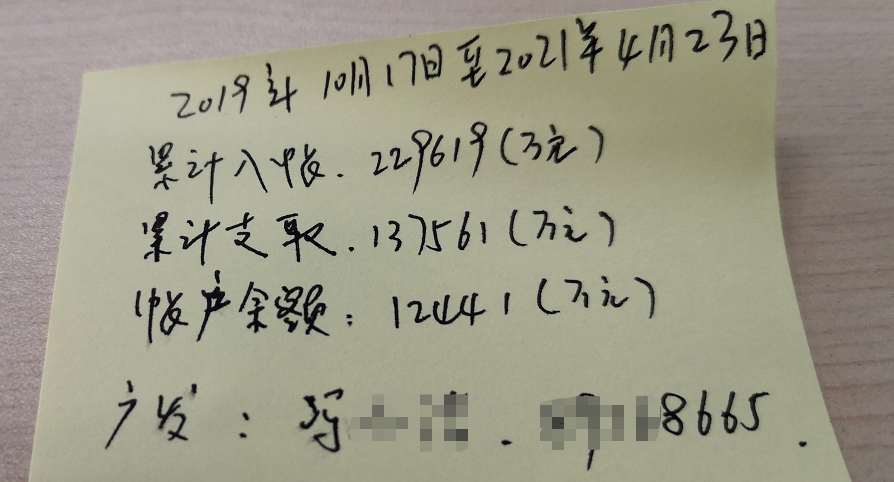 2019年10月17日至2021年4月23日
累计入帐.229619(万元)
累计支取.137561(万元)
帐户余额:12441(万元)
广发: . 8665.